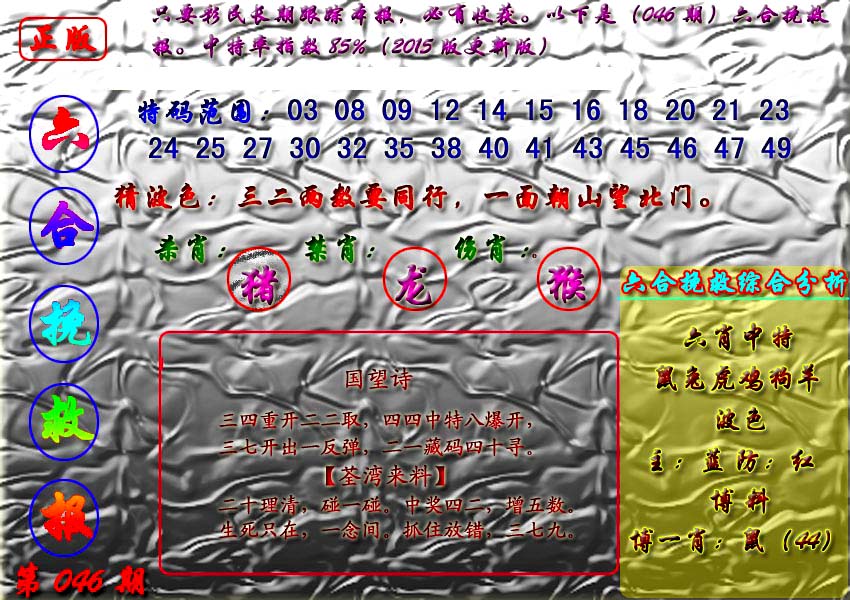 正版
只要彩民长期跟踪本报，必有收获。以下是（046期）六合挽救
报。中特率指数85%（2015版更新版）
六
合
挽
救
报
第 046 期
特码范围：03 08 09 12 14 15 16 18 20 21 23
24 25 27 30 32 35 38 40 41 43 45 46 47 49
猜波色：三二两数要同行，一面朝山望北门。
杀肖：猪 禁肖：龙 伤肖：猴
国望诗
三四重开二二取，四四中特八爆开，
三七开出一反弹，二一藏码四十寻。
【荃湾来料】
二十理清，碰一碰。中奖四二，增五数。
生死只在，一念间。抓住放错，三七九。
六合挽救综合分析
六肖中特
鼠兔虎鸡狗羊
波色
主：蓝防：红
博料
博一肖：鼠（44）